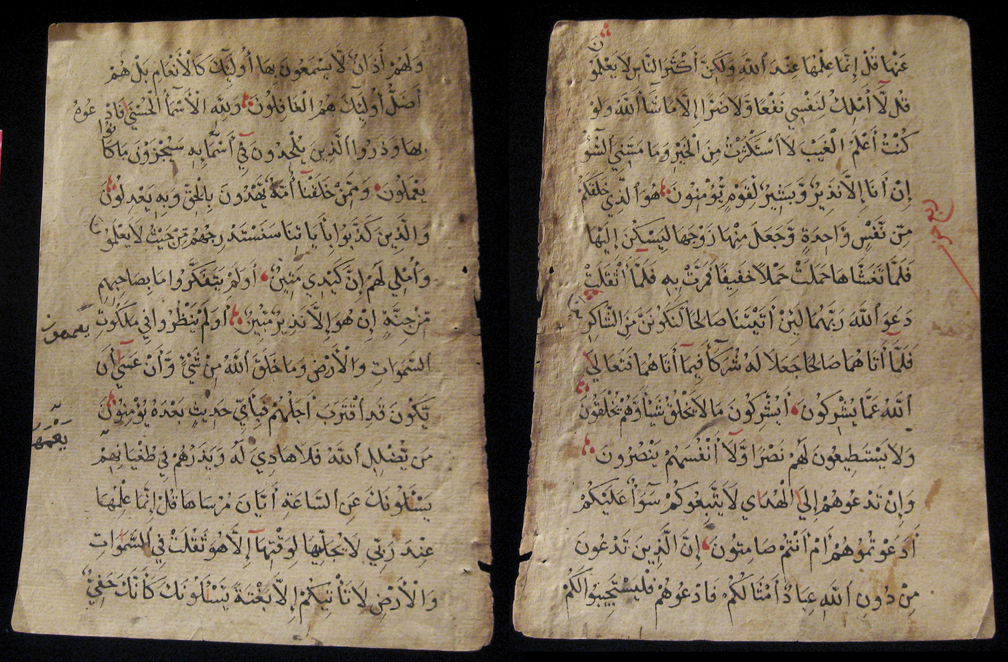 وَلَهُمْ أَذَانٌ لَا يَسْمَعُونَ بِهَا أُولَٰئِكَ كَالْأَنْعَامِ بَلْ هُمْ
أَضَلُّ أُولَٰئِكَ هُمُ الْغَافِلُونَ وَلِلَّهِ الْأَسْمَآءُ الْحُسْنَىٰ فَادْعُوهُ
بِهَا وَذَرُوا الَّذِينَ يُلْحِدُونَ فِي أَسْمَآئِهِ سَيُجْزَوْنَ مَا كَانُوا
يَعْمَلُونَ وَمِمَّنْ خَلَقْنَا أُمَّةٌ يَهْدُونَ بِالْحَقِّ وَبِهِ يَعْدِلُونَ
وَالَّذِينَ كَذَّبُوا بِأَيَاتِنَا سَنَسْتَدْرِجُهُمْ مِنْ حَيْثُ لَا يَعْلَمُونَ
وَأُمْلِي لَهُمْ إِنَّ كَيْدِي مَتِينٌ أَوَلَمْ يَتَفَكَّرُوا مَا بِصَاحِبِهِمْ
مِنْ جِنَّةٍ إِنْ هُوَ إِلَّا نَذِيرٌ مُبِينٌ أَوَلَمْ يَنْظُرُوا فِي مَلَكُوتِ
السَّمَوَاتِ وَالْأَرْضِ وَمَا خَلَقَ اللَّهُ مِنْ شَيْءٍ وَأَنْ عَسَىٰ أَنْ
يَكُونَ قَدِ اقْتَرَبَ أَجَلُهُمْ فَبِأَيِّ حَدِيثٍ بَعْدَهُ يُؤْمِنُونَ
مَنْ يُضْلِلِ اللَّهُ فَلَا هَادِيَ لَهُ وَيَذَرُهُمْ فِي طُغْيَانِهِمْ
يَعْمَهُونَ
يَسْـَٔلُونَكَ عَنِ السَّاعَةِ أَيَّانَ مُرْسَاهَا قُلْ إِنَّمَا عِلْمُهَا
عِنْدَ رَبِّي لَا يُجَلِّيهَا لِوَقْتِهَا إِلَّا هُوَ ثَقُلَتْ فِي السَّمَوَاتِ
وَالْأَرْضِ لَا تَأْتِيكُمْ إِلَّا بَغْتَةً يَسْـَٔلُونَكَ كَأَنَّكَ حَفِيٌّ
عَنْهَا قُلْ إِنَّمَا عِلْمُهَا عِنْدَ اللَّهِ وَلَكِنَّ أَكْثَرَ النَّاسِ لَا يَعْلَمُونَ
قُلْ لَا أَمْلِكُ لِنَفْسِي نَفْعًا وَلَا ضَرًّا إِلَّا مَا شَآءَ اللَّهُ وَلَوْ
كُنْتُ أَعْلَمُ الْغَيْبَ لَاسْتَكْثَرْتُ مِنَ الْخَيْرِ وَمَا مَسَّنِيَ السُّوءُ
إِنْ أَنَا إِلَّا نَذِيرٌ وَبَشِيرٌ لِقَوْمٍ يُؤْمِنُونَ هُوَ الَّذِي خَلَقَكُمْ
مِنْ نَفْسٍ وَاحِدَةٍ وَجَعَلَ مِنْهَا زَوْجَهَا لِيَسْكُنَ إِلَيْهَا
فَلَمَّا تَغَشَّاهَا حَمَلَتْ حَمْلًا خَفِيفًا فَمَرَّتْ بِهِ فَلَمَّا أَثْقَلَتْ
دَعَوَا اللَّهَ رَبَّهُمَا لَئِنْ أَتَيْتَنَا صَالِحًا لَنَكُونَنَّ مِنَ الشَّاكِرِينَ
فَلَمَّا أَتَاهُمَا صَالِحًا جَعَلَا لَهُ شُرَكَآءَ فِيمَا أَتَاهُمَا فَتَعَالَى
اللَّهُ عَمَّا يُشْرِكُونَ أَيُشْرِكُونَ مَا لَا يَخْلُقُ شَيْئًا وَهُمْ يُخْلَقُونَ
وَلَا يَسْتَطِيعُونَ لَهُمْ نَصْرًا وَلَا أَنْفُسَهُمْ يَنْصُرُونَ
وَإِنْ تَدْعُوهُمْ إِلَى الْهُدَىٰ لَا يَتَّبِعُوكُمْ سَوَآءٌ عَلَيْكُمْ
أَدَعَوْتُمُوهُمْ أَمْ أَنْتُمْ صَامِتُونَ إِنَّ الَّذِينَ تَدْعُونَ
مِنْ دُونِ اللَّهِ عِبَادٌ أَمْثَالُكُمْ فَادْعُوهُمْ فَلْيَسْتَجِيبُوا لَكُمْ